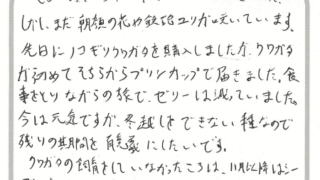 しかし、まだ朝顔の花や鉄砲ユリが咲いています。
先日にノコギリクワガタを購入しましたが、クワガタ
が初めてそちらからプリンカップで届きました。食
事をとりながらの旅で、ゼリーは減っていました。
今は元気ですが、冬越しをできない種なので
残りの期間を大事にしたいです。
クワガタの飼育をしていなかったころは、11月以降はシー